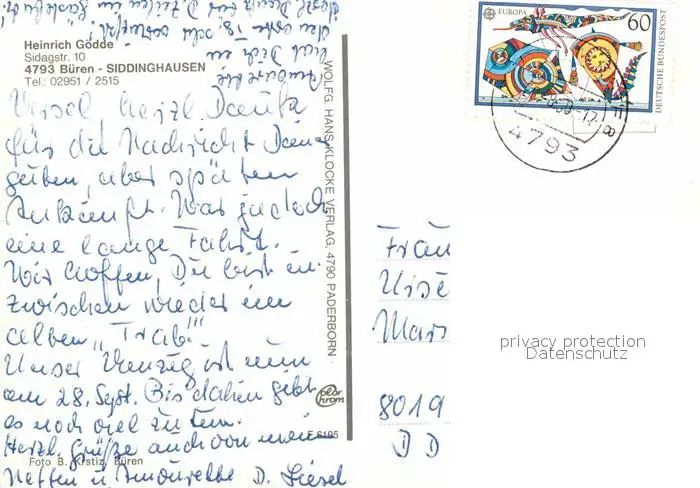 Heinrich Gödde
Sidagstr. 10
4793 Büren - SIDDINGHAUSEN
Tel: 02951 / 2515
Ursel herzl. Dank
für die Nachricht Deiner
guten, aber späten
Ankunft. War ja doch
eine lange Fahrt.
Wir hoffen, Du bist in-
zwischen wieder im
alten "Trab"!!
Unser Umzug ist nun
am 28. Sept. Bis dahin gibt
es noch viel zu tun.
Herzl. Grüße auch von
Neffen u. D. Liesel
WOLFG. HANS KLOCKE VERLAG, 4790 PADERBORN
F 6195
Foto B. Krstiz, Büren
EUROPA
60
DEUTSCHE BUNDESPOST
4793
Frau
Urse
Mars
8019
DD
privacy protection
Datenschutz